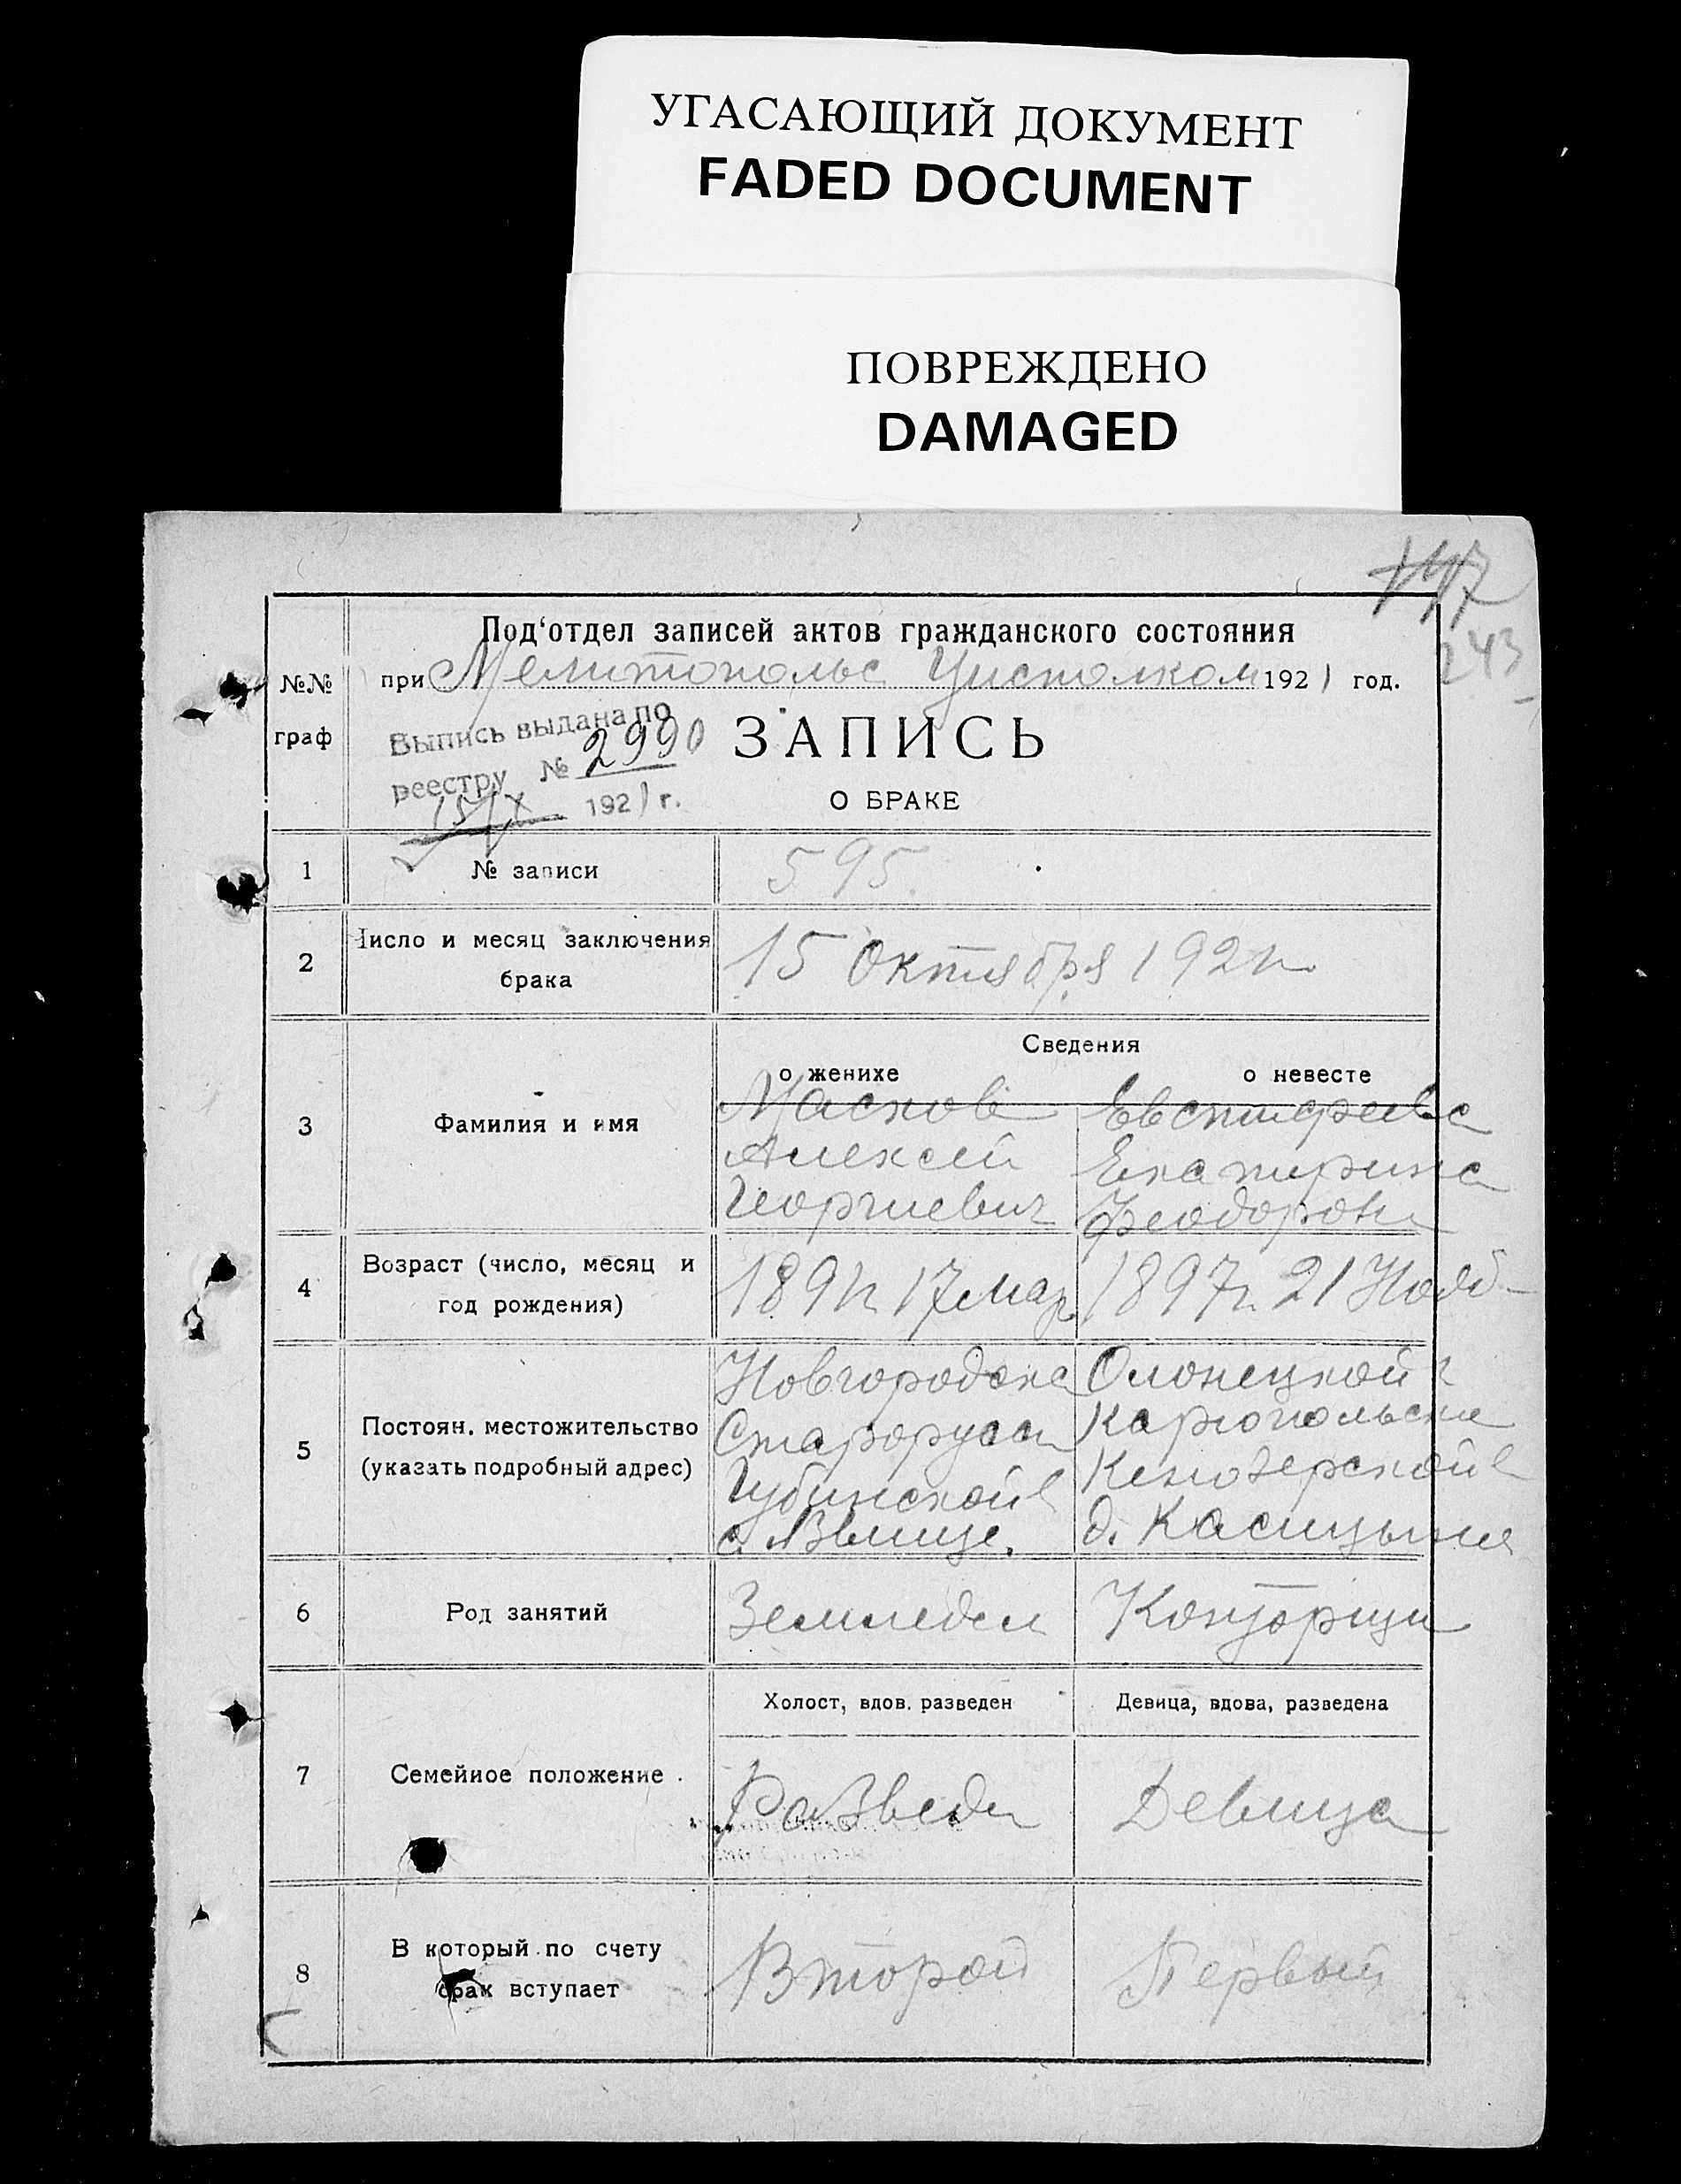 УГАСАЮЩИЙ ДОКУМЕНТ
FADED DOCUMENT
ПОВРЕЖДЕНО
DAMAGED
147
243
№№ граф
Под‘отдел записей актов гражданского состояния
при Мелитопольс Уисполком 1921 год.
Выпись выдана по
реестру № 2990
15/X 1921 г.
ЗАПИСЬ
О БРАКЕ
1 № записи 595.
2 Число и месяц заключения
брака
15 Октября 1921г.
Сведения
о женихе о невесте
3 Фамилия и имя
Маснов Евстифеева
Алексей Екатерина
Георгиевич Феодоровн
4 Возраст (число, месяц и
год рождения)
1891г 17 мар 1897г. 21 Нояб
5 Постоян. местожительство
(указать подробный адрес)
Новгородска Олонецкой г
Старорусск Каргопольск
Губинской в Кенозерской в
с. д.
6 Род занятий Земледел Конторщи
7 Семейное положение.
Холост, вдов. разведен Девица, вдова, разведена
Разведен Девица
8 В который по счету
брак вступает
Второй Первый